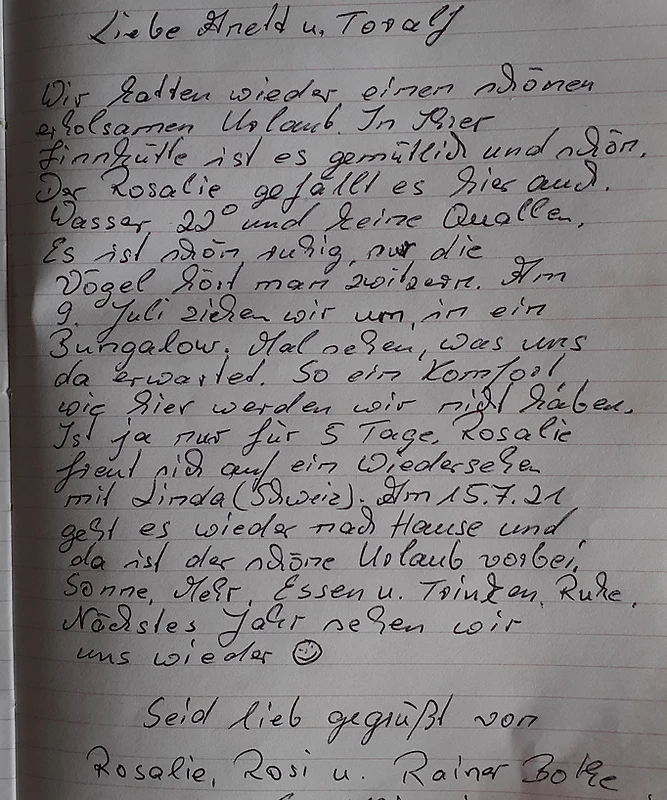 Liebe Anett u. Toralf
Wir hatten wieder einen schönen
erholsamen Urlaub. In Ihrer
Finnhütte ist es gemütlich und schön.
Der Rosalie gefällt es hier auch.
Wasser 22° und keine Quallen.
Es ist schön ruhig, nur die
Vögel hört man zwitzern. Am
9. Juli ziehen wir um, in ein
Bungalow. Mal sehen, was uns
da erwartet. So ein Komfort
wie hier werden wir nicht haben.
Ist ja nur für 5 Tage. Rosalie
freut sich auf ein Wiedersehen
mit Linda (Schweiz). Am 15.7.21
geht es wieder nach Hause und
da ist der schöne Urlaub vorbei.
Sonne, Mehr, Essen u. Trinken, Ruhe.
Nächstes Jahr sehen wir
uns wieder ☺
Seid lieb gegrüßt von
Rosalie, Rosi u. Rainer